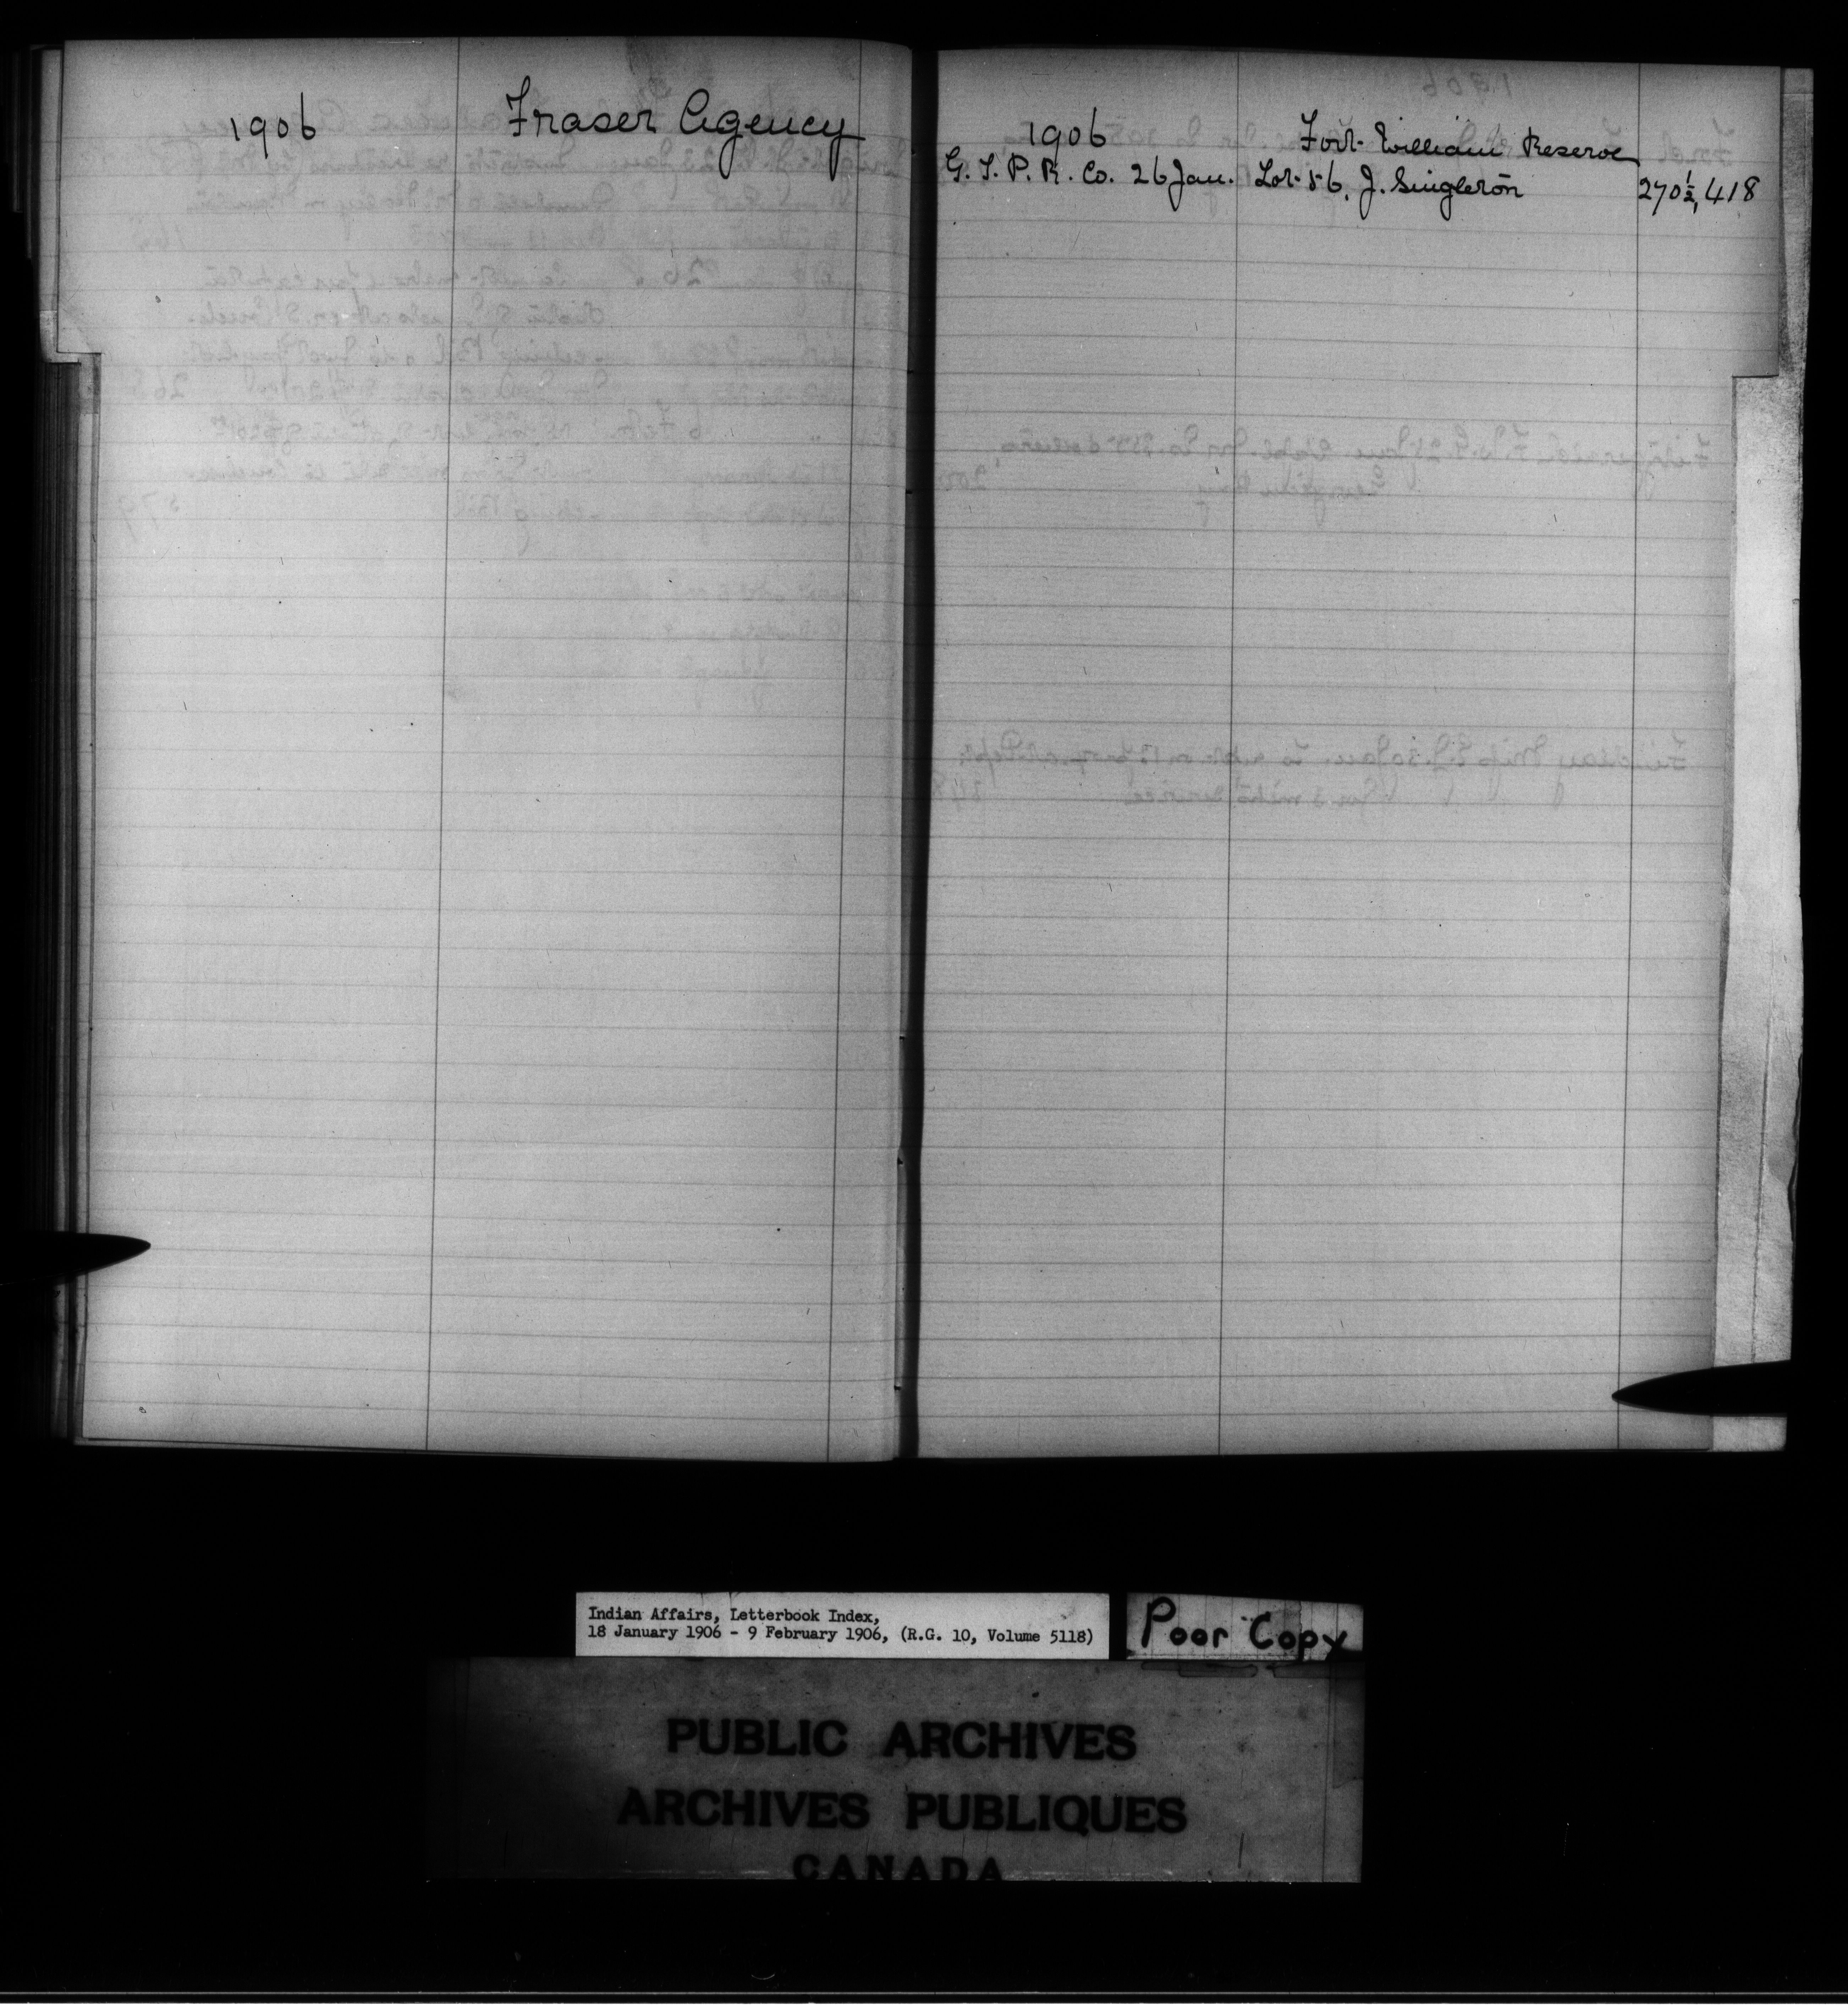 1906 Fraser Agency
1906 Fort William Reserve
G. T. P. R. Co. 26 Jan. Lot 56. J. Singleton 270½, 418
Indian Affairs, Letterbook Index,
18 January 1906 - 9 February 1906, (R.G. 10, Volume 5118)
Poor Copy
PUBLIC ARCHIVES
ARCHIVES PUBLIQUES
CANADA